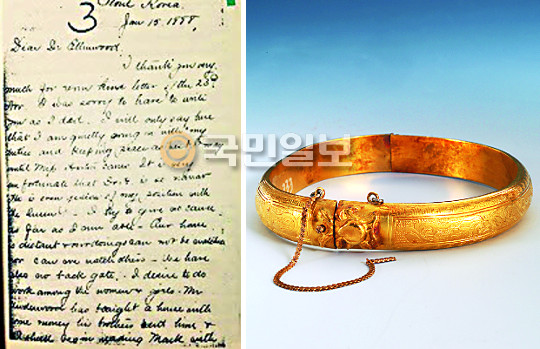 3
Seoul Korea.
Jan 15. 1888.
Dear Dr Ellinwood.
I thank you very
much for your kind letter of the 23rd
Nov. I was sorry to have to write
you as I did. I will only say here
that I am quietly going on with my
duties and keeping
until Miss Horton came. It is very
unfortunate that Dr. A. is so
He is over jealous of my position with
the Queen. I try to give no cause
as far as I am able. Our home
is distant &
nor can we watch his. We have
also no back gate. I desire to do
work among the women & girls. Mr
Underwood has bought a house with
some money his brothers sent him &
I shall begin reading Mark with
국민일보